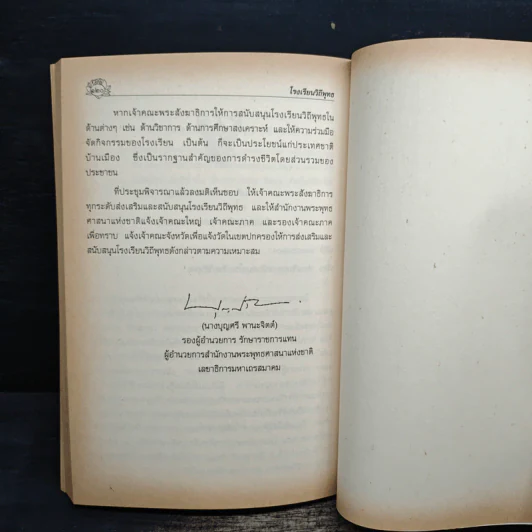 โรงเรียนวิถีพุทธ
หากเจ้าคณะพระสังฆาธิการให้การสนับสนุนโรงเรียนวิถีพุทธใน
ด้านต่างๆ เช่น ด้านวิชาการ ด้านการศึกษาสงเคราะห์ และให้ความร่วมมือ
จัดกิจกรรมของโรงเรียน เป็นต้น ก็จะเป็นประโยชน์แก่ประเทศชาติ
บ้านเมือง ซึ่งเป็นรากฐานสำคัญของการดำรงชีวิตโดยส่วนรวมของ
ประชาชน
ที่ประชุมพิจารณาแล้วลงมติเห็นชอบ ให้เจ้าคณะพระสังฆาธิการ
ทุกระดับส่งเสริมและสนับสนุนโรงเรียนวิถีพุทธ และให้สำนักงานพระพุทธ
ศาสนาแห่งชาติแจ้งเจ้าคณะใหญ่ เจ้าคณะภาค และรองเจ้าคณะภาค
เพื่อทราบ แจ้งเจ้าคณะจังหวัดเพื่อแจ้งวัดในเขตปกครองให้การส่งเสริมและ
สนับสนุนโรงเรียนวิถีพุทธดังกล่าวตามความเหมาะสม
(นางบุญศรี พานะจิตต์)
รองผู้อำนวยการ รักษาราชการแทน
ผู้อำนวยการสำนักงานพระพุทธศาสนาแห่งชาติ
เลขาธิการมหาเถรสมาคม